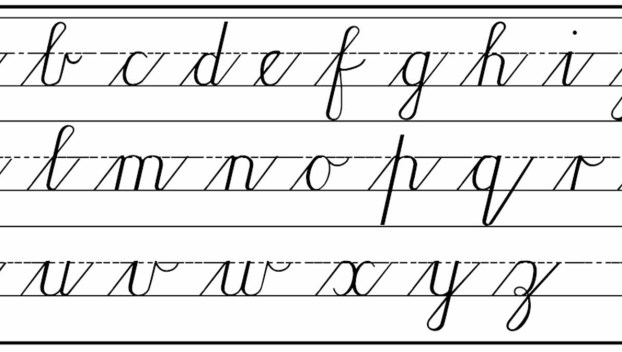 b c d e f g h i
l m n o p q r
u v w x y z